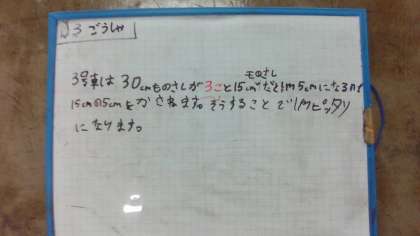 3ごうしゃ
ものさし
3号車は30cmものさしが3こと15cmだと1m5cmになるので
15cmの5cmをかさねます。そうすることで1mピッタリ
になります。